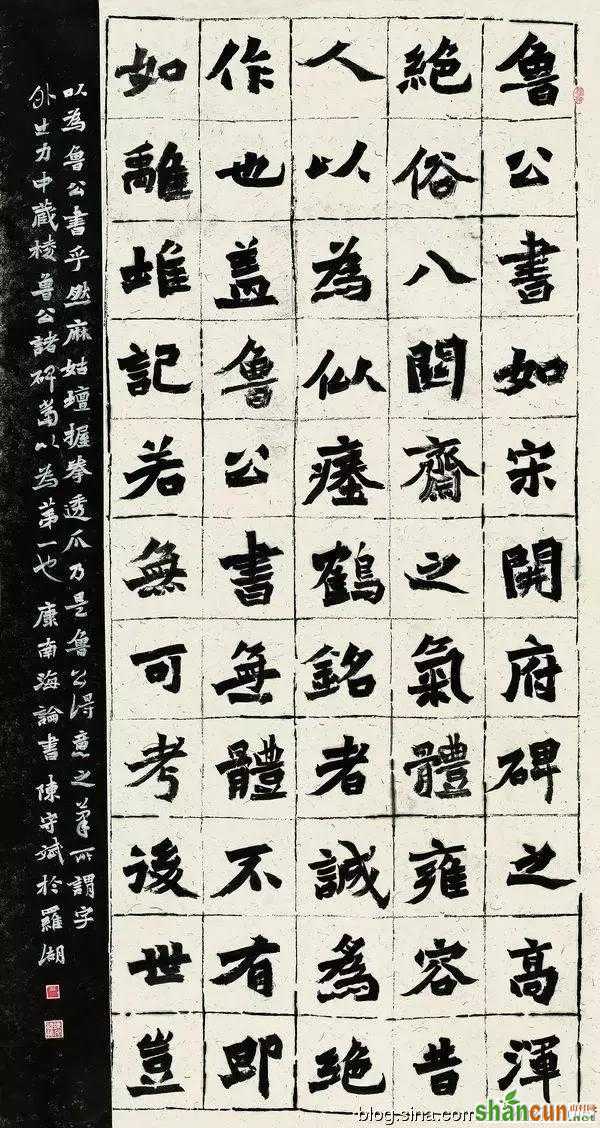 魯公書如宋開府碑之高渾
絕俗八關齋之氣體雍容昔
人以為似瘞鶴銘者誠為絕
作也蓋魯公書無體不有即
如離堆記若無可考後世豈
以為魯公書乎然麻姑壇握拳透爪乃是魯公得意之筆所謂字
外出力中藏棱魯公諸碑當以為第一也 康南海論書 陳守斌於羅湖
blog.sina.com
shancun
山村网
.net